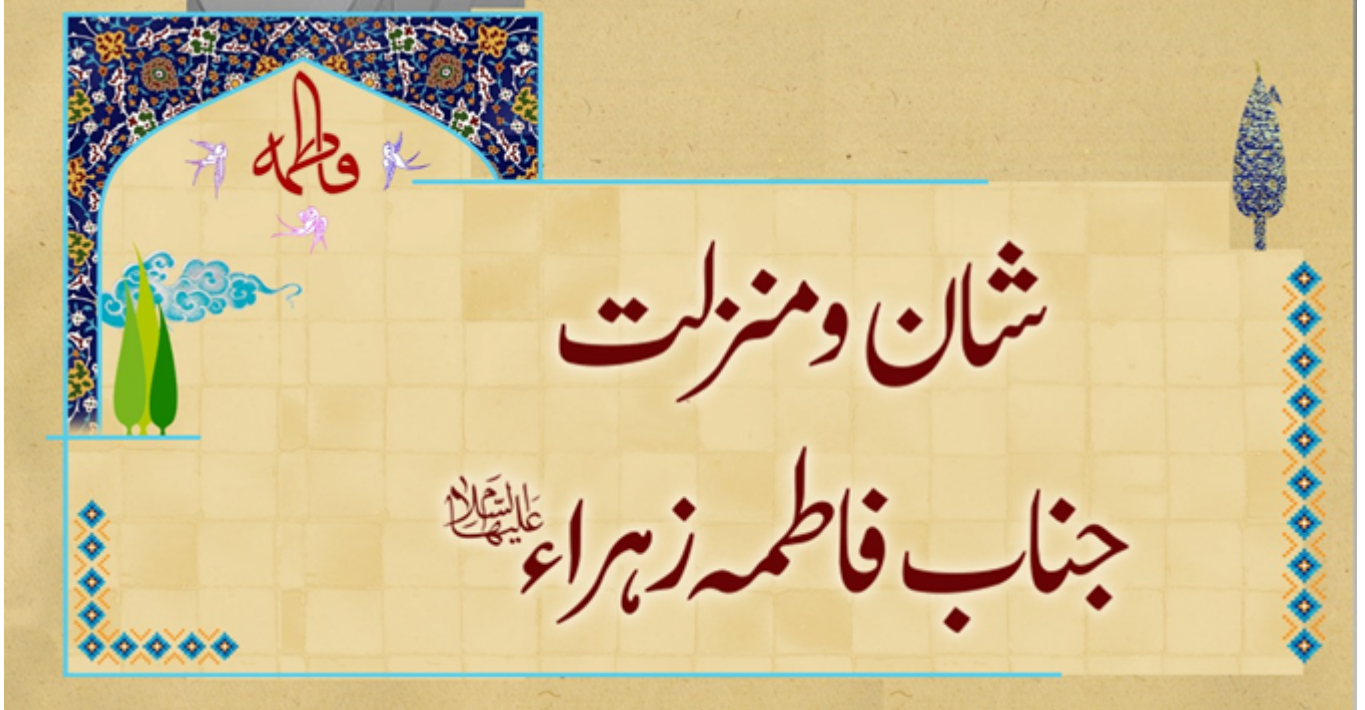 فاطمہ
شان ومنزلت
جناب فاطمہ زہراء علیہا السلام